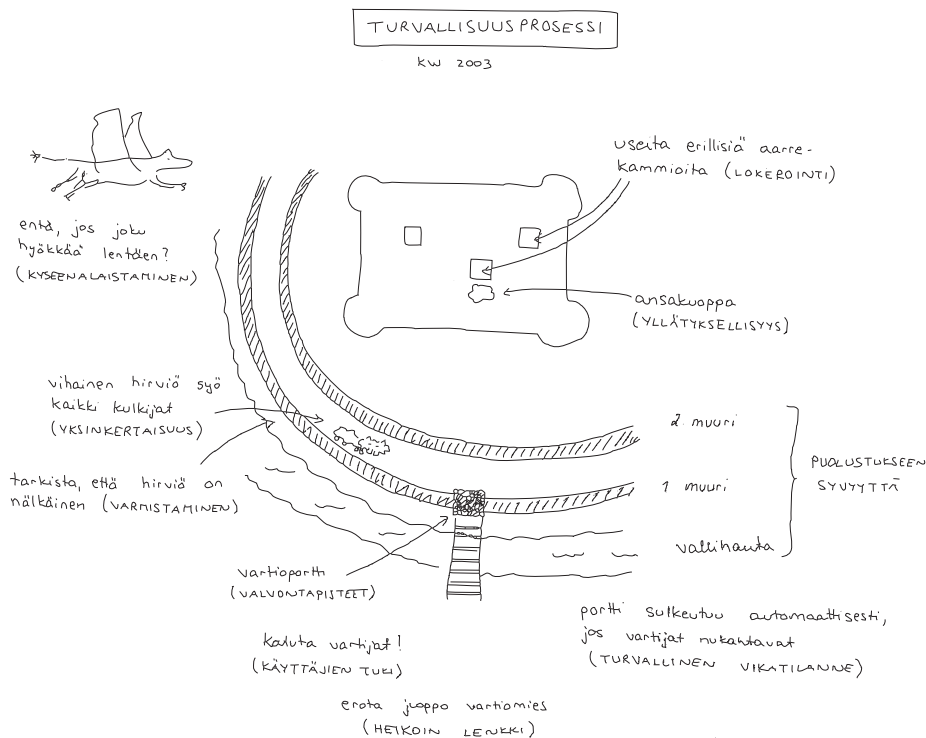 TURVALLISUUSPROSESSI
KW 2003
useita erillisiä aarre-
kammioita (LOKEROINTI)
entä, jos joku
hyökkää lentäen?
(KYSEENALAISTAMINEN)
ansakuoppa
(YLLÄTYKSELLISYYS)
vihainen hirviö syö
kaikki kulkijat
(YKSINKERTAISUUS)
2 muuri
PUOLUSTUKSEEN
SYVYYTTÄ
tarkista, että hirviö on
nälkäinen (VARMISTAMINEN)
1 muuri
vallihauta
vartioportti
(VALVONTAPISTEET)
portti sulkeutuu automaattisesti,
jos vartijat nukahtavat
(TURVALLINEN VIKATILANNE)
kaluta vartijat!
(KÄYTTÄJIEN TUKI)
erota juoppo vartiomies
(HEIKOIN LENKKI)